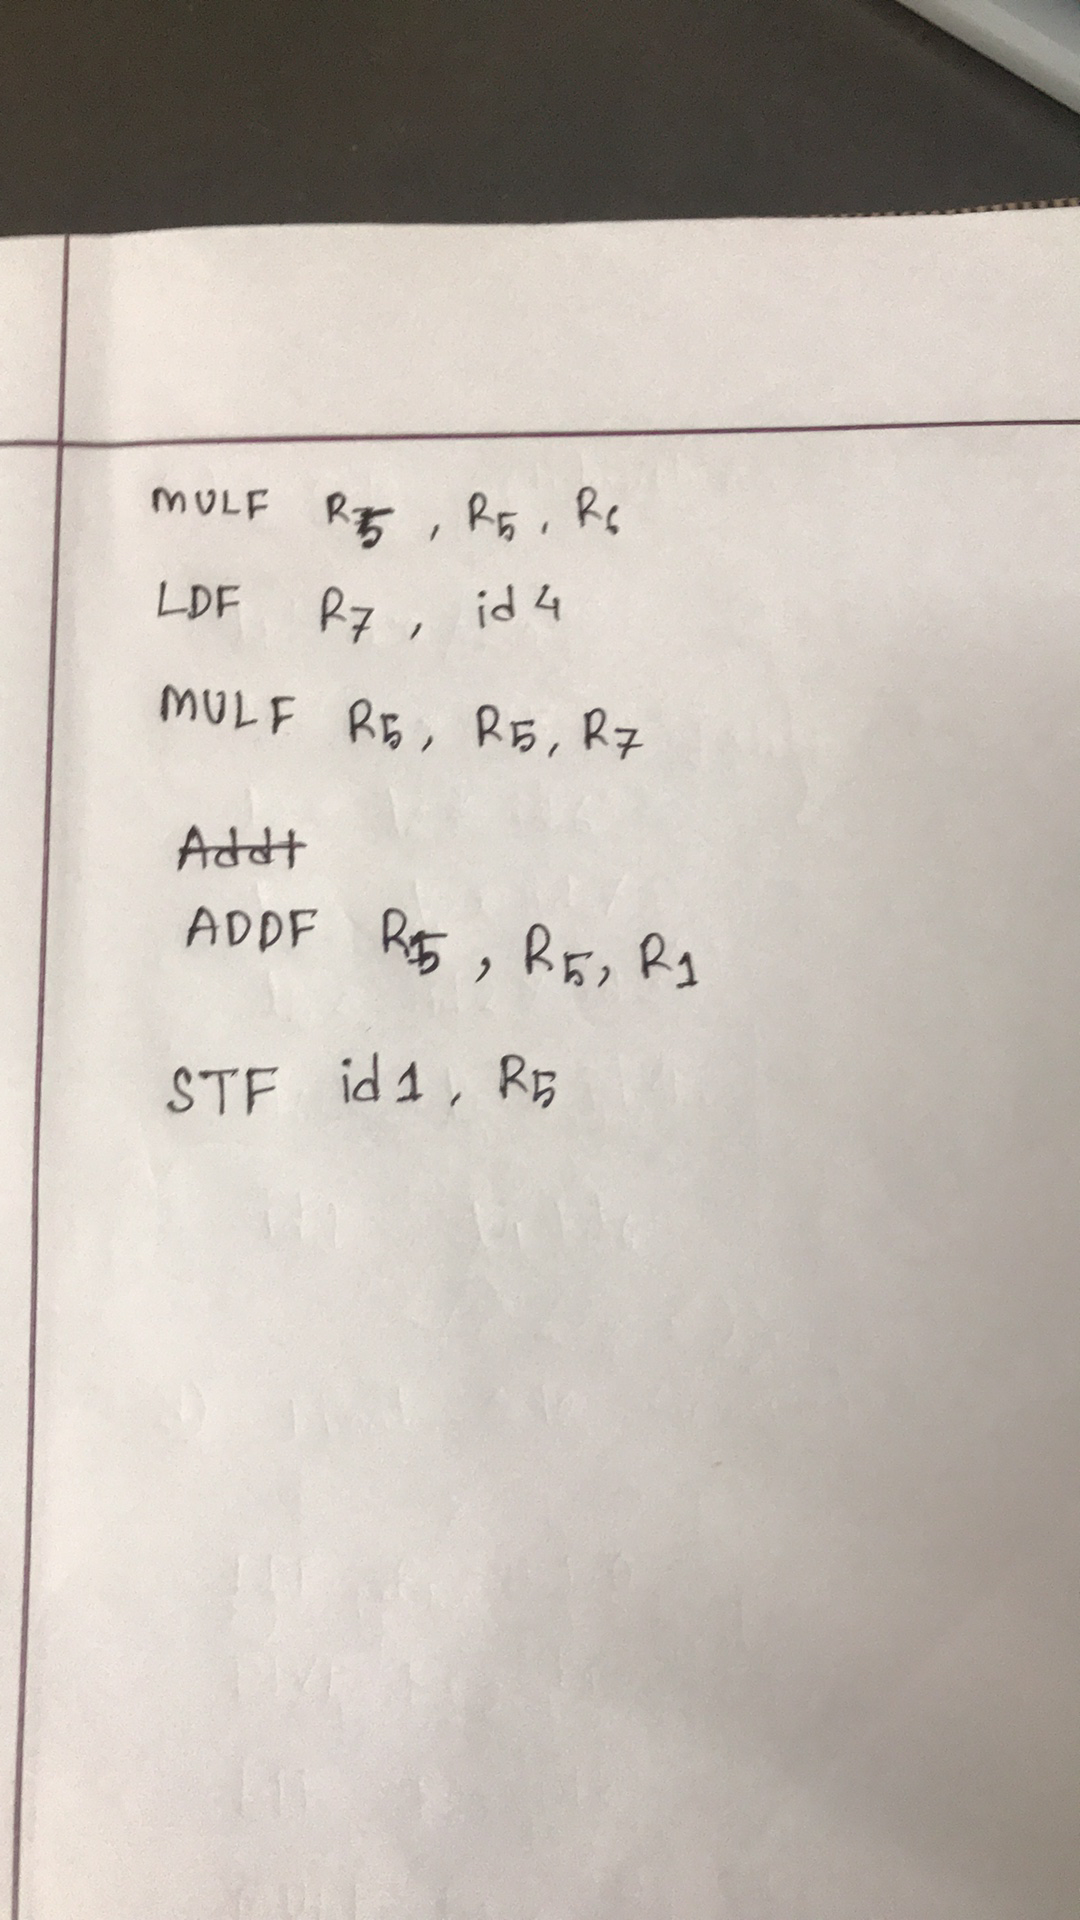 MULF R5, R5, R6
LDF R7, id4
MULF R5, R5, R7
Addt
ADDF R5, R5, R1
STF id1, R5